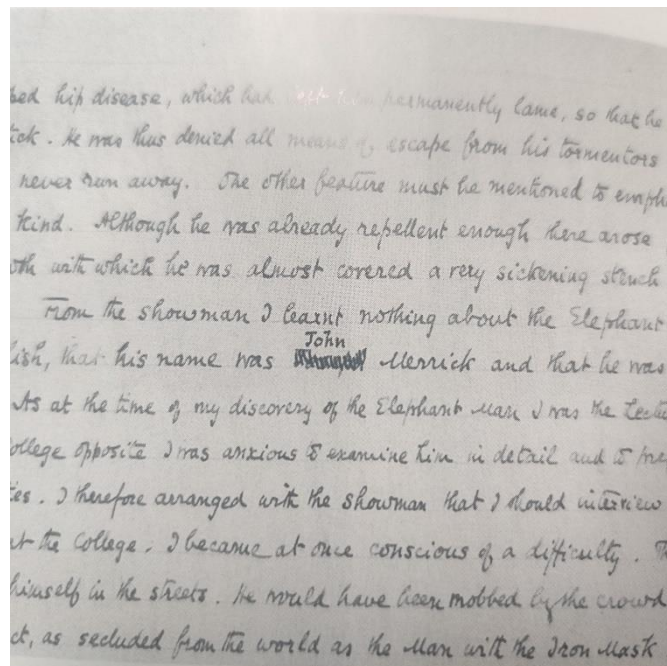 hip disease, which had permanently lame, so that he
He was thus denied all means of escape from his tormentors
never run away. One other feature must be mentioned to emph
kind. Although he was already repellent enough here arose
with which he was almost covered a very sickening stench
From the showman I learnt nothing about the Elephant
John
lish, that his name was Merrick and that he was
As at the time of my discovery of the Elephant Man I was the Lectu
ollege opposite I was anxious to examine him in detail and to pre
I therefore arranged with the showman that I should interview
at the College. I became at once conscious of a difficulty.
himself in the streets. He would have been mobbed by the crowd
ct, as secluded from the world as the Man with the Iron Mask